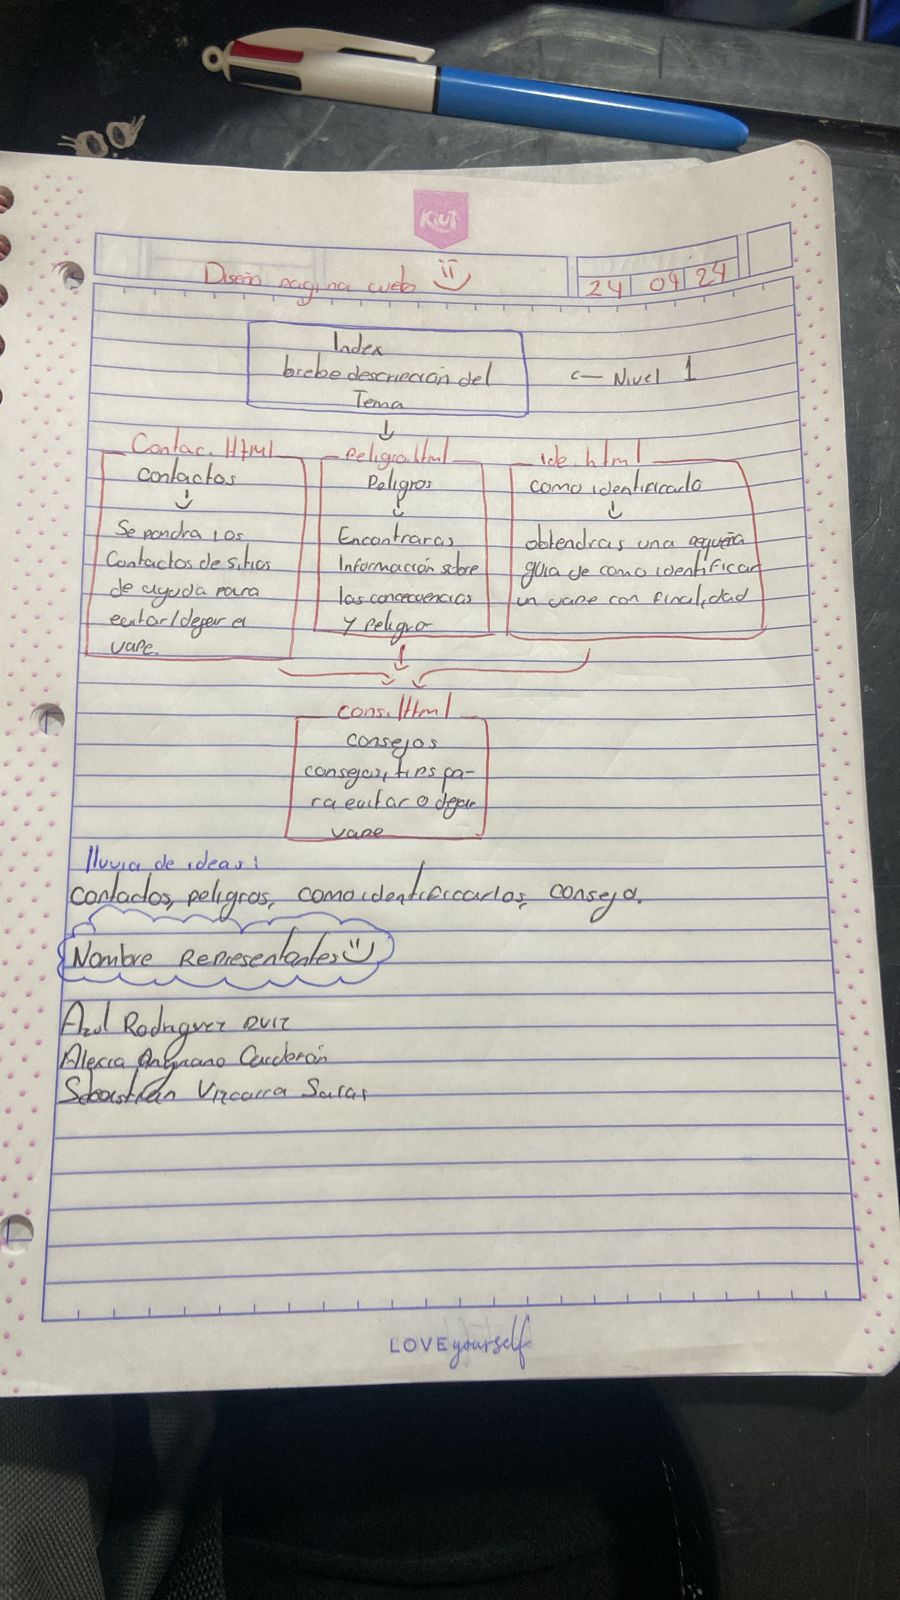 KIUT
Diseño pagina web
24 04 24
Index
brebe descripción del
Tema
<— Nivel 1
Contac. Html
contactos
Se pondra los
Contactos de sitios
de ayuda para
evitar/dejar el
vape.
Peligro.Html
Peligros
Encontraras
Información sobre
las concecuencias
y peligro
ide.html
como identificarlo
obtendras una pequeña
guia de como identificar
un vape con finalidad
cons.Html
consejos
consejos, tips pa-
ra evitar o dejar
vape
lluvia de ideas:
contactos, peligros, como identificcarlos, consejo.
Nombre Representantes
Azul Rodriguez Ruiz
Alexca Calderón
Sebastian Vizcarra Salas
LOVE yourself